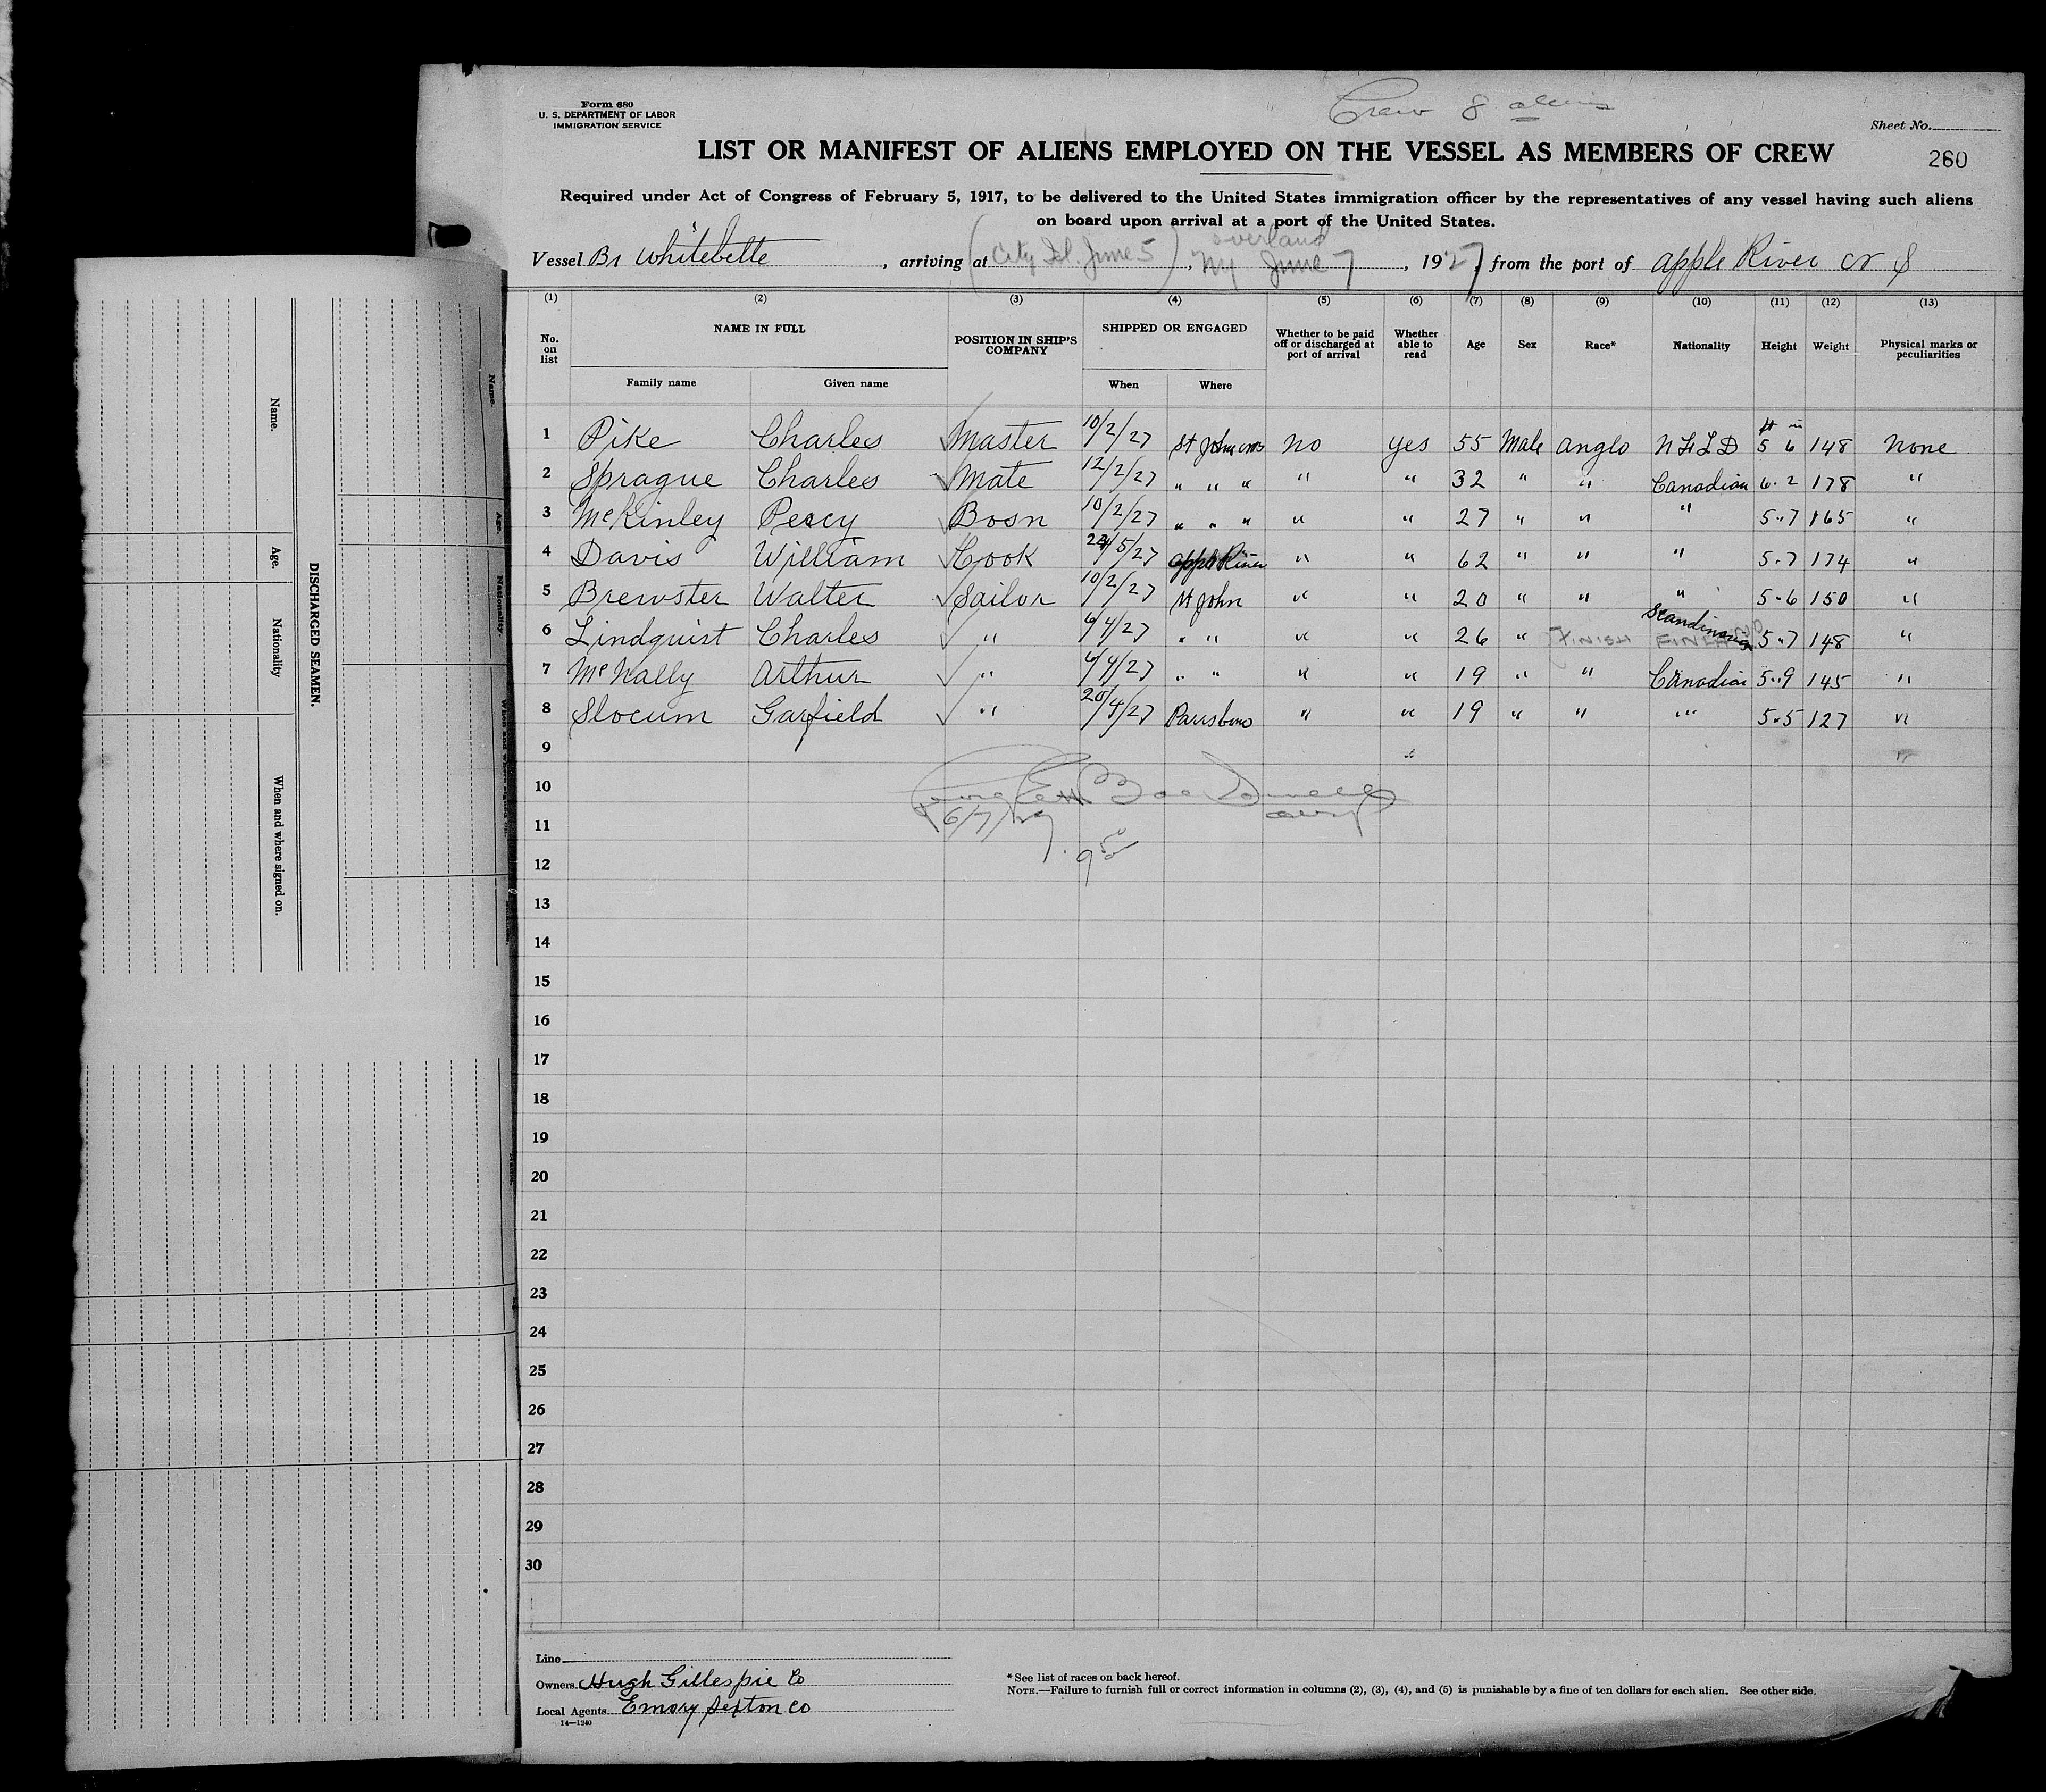 Form 680
U. S. DEPARTMENT OF LABOR
IMMIGRATION SERVICE
Crew 8 aliens
Sheet No.
LIST OR MANIFEST OF ALIENS EMPLOYED ON THE VESSEL AS MEMBERS OF CREW
260
Required under Act of Congress of February 5, 1917, to be delivered to the United States immigration officer by the representatives of any vessel having such aliens
on board upon arrival at a port of the United States.
overland
Vessel Br Whitebelle, arriving at (City Isl. June 5), NY June 7, 1927, from the port of Apple River
(1) (2) (3) (4) (5) (6) (7) (8) (9) (10) (11) (12) (13)
No. on list NAME IN FULL POSITION IN SHIP'S COMPANY SHIPPED OR ENGAGED Whether to be paid off or discharged at port of arrival Whether able to read Age Sex Race* Nationality Height Weight Physical marks or peculiarities
Family name Given name When Where
ft in
1 Pike Charles Master 10/2/27 St John no yes 55 Male Anglo NFLD 5 6 148 None
2 Sprague Charles Mate 12/2/27 " " " " " 32 " " Canadian 6.2 178 "
3 McKinley Percy Bosn 10/2/27 " " " " " 27 " " " 5.7 165 "
4 Davis William Cook 24/5/27 Apple River " " 62 " " " 5.7 174 "
5 Brewster Walter Sailor 10/2/27 St John " " 20 " " " 5.6 150 "
Scandinavian
6 Lindquist Charles " 6/4/27 " " " " 26 " FINISH FINLAND 5.7 148 "
7 McNally Arthur " 6/4/27 " " " " 19 " " Canadian 5.9 145 "
8 Slocum Garfield " 20/4/27 Parrsboro " " 19 " " " 5.5 127 "
9 " "
10
11 6/7/27
12
13
14
15
16
17
18
19
20
21
22
23
24
25
26
27
28
29
30
Line
Owners Hugh Gillespie Co
Local Agents Emory Sexton Co
14—1240
*See list of races on back hereof.
NOTE.—Failure to furnish full or correct information in columns (2), (3), (4), and (5) is punishable by a fine of ten dollars for each alien. See other side.
DISCHARGED SEAMEN.
Name. Age. Nationality When and where signed on.
Name. Age. Nationality.